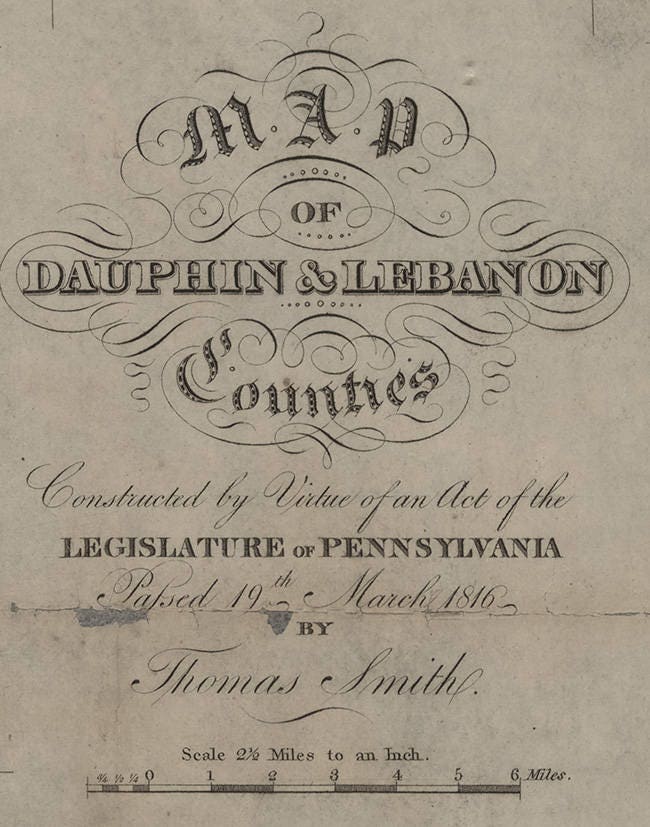 M.A.P
OF
DAUPHIN & LEBANON
Counties
Constructed by Virtue of an Act of the
LEGISLATURE OF PENNSYLVANIA
Paſsed 19th March 1816
BY
Thomas Smith.
Scale 2½ Miles to an Inch.
¾ ½ ¼ 0 1 2 3 4 5 6 Miles.